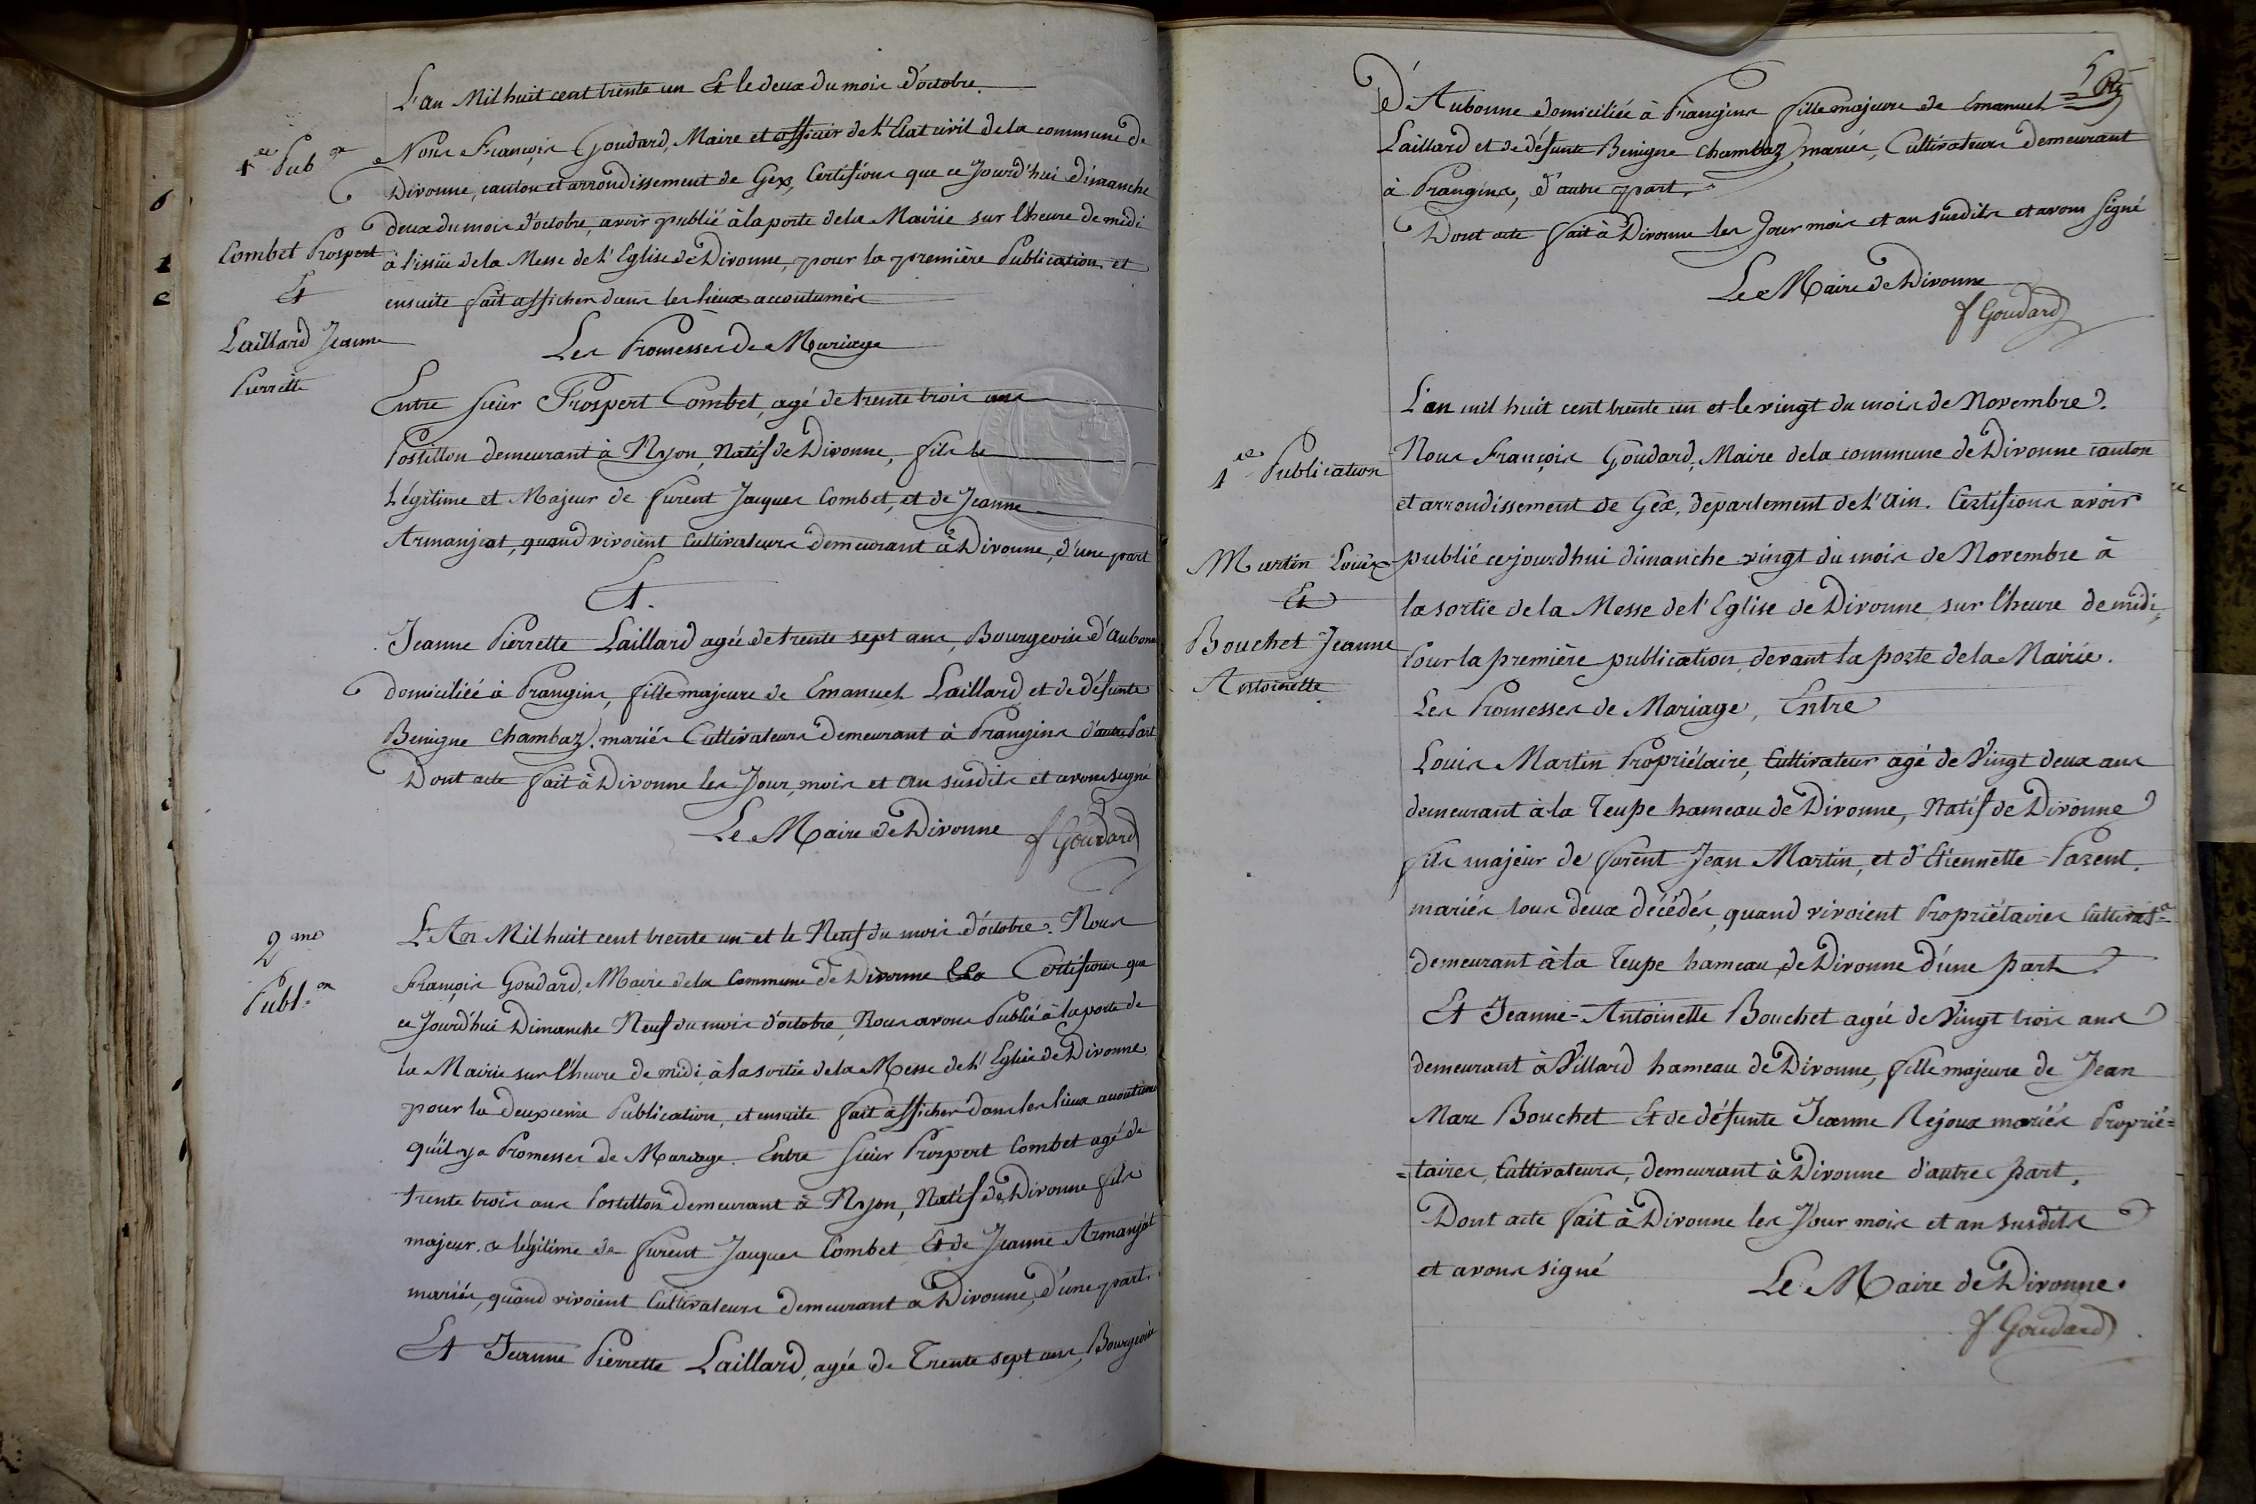 L'an Mil huit cent trente un Et le deux du mois d'octobre.
1re Pubon
Nous François Goudard, Maire et officier de l'Etat civil de la commune de
Divonne, canton et arrondissement de Gex, Certifions que ce Jourd'hui dimanche
deux du mois d'octobre, avoir publié à la porte de la Mairie sur l'heure de midi
Combet Prospert
Et
Laillard Jeanne
Pierrette
à l'issüe de la Messe de l'Eglise de Divonne, pour la première Publication et
ensuite fait afficher dans les lieux accoutumés
Les Promesses de Mariage
Entre sieur Prospert Combet, agé de trente trois ans
Postillon demeurant à Nyon, Natif de Divonne, fils le
Légitime et Majeur de furent Jacques Combet, et de Jeanne
Armanjat, quand vivoient Cultivateurs demeurant à Divonne, d'une part
Et.
Jeanne Pierrette Laillard agée de trente sept ans, Bourgeoise d'Aubonne
domiciliée à Prangins, fille majeure de Emanuel Laillard et de défunte
Benigne Chambaz, mariés Cultivateurs demeurant à Prangins d'autre Part
Dont acte fait à Divonne les Jour, mois et an susdits et avons signé
Le Maire de Divonne
f Goudard
2me
Publ.on
L'An Mil huit cent trente un et le Neuf du mois d'octobre. Nous
François Goudard, Maire de la Commune de Divonne Certifions que
ce Jourd'hui Dimanche Neuf du mois d'octobre, Nous avons Publié à la porte de
la Mairie sur l'heure de midi à la sortie de la Messe de l'Eglise de Divonne
pour la deuxieme Publication, et ensuite fait afficher dans les lieux accoutumés
qu'il y a Promesses de Mariage. Entre sieur Prospert Combet agé de
trente trois ans Postillon demeurant à Nyon, Natif de Divonne fils
majeur & légitime de furent Jacques Combet Et de Jeanne Armanjat
mariés, quand vivoient Cultivateurs demeurant à Divonne, d'une part.
Et Jeanne Pierrette Laillard, agée de Trente sept ans, Bourgeoise
5
d'Aubonne domiciliée à Prangins fille majeure de Emanuel
Laillard et de défunte Benigne Chambaz, mariés, Cultivateurs demeurant
à Prangins, d'autre part.
Dont acte fait à Divonne les Jour mois et an susdits et avons signé
Le Maire de Divonne
f Goudard
L'an mil huit cent trente un et le vingt du mois de Novembre.
1re Publication
Martin Louis
Et
Bouchet Jeanne
Antoinette
Nous François Goudard, Maire de la commune de Divonne canton
et arrondissement de Gex, departement de l'Ain. Certifions avoir
publié cejourdhui dimanche vingt du mois de Novembre à
la sortie de la Messe de l'Eglise de Divonne sur l'heure de midi,
Pour la première publication, devant la porte de la Mairie.
Les Promesses de Mariage, Entre
Louis Martin Propriétaire, Cultivateur agé de Vingt deux ans
demeurant à la Teupe hameau de Divonne, Natif de Divonne
fils majeur de furent Jean Martin, et d'Etiennette Parent,
mariés tous deux décédés, quand vivoient Propriétaires Cultivatrs
demeurant à la Teupe hameau de Divonne d'une part.
Et Jeanne-Antoinette Bouchet agée de Vingt trois ans
demeurant à Villard hameau de Divonne, fille majeure de Jean
Marc Bouchet Et de défunte Jeanne Rejoux mariés Proprié=
=taires, Cultivateurs, demeurant à Divonne d'autre part,
Dont acte fait à Divonne les Jour mois et an susdits
et avons signé
Le Maire de Divonne.
f Goudard